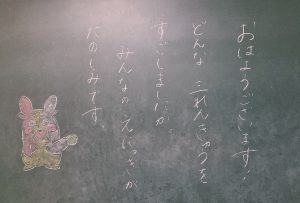 おはようございます！
どんな 三れんきゅうを
すごしましたか。
みんなの えにっきが
たのしみです